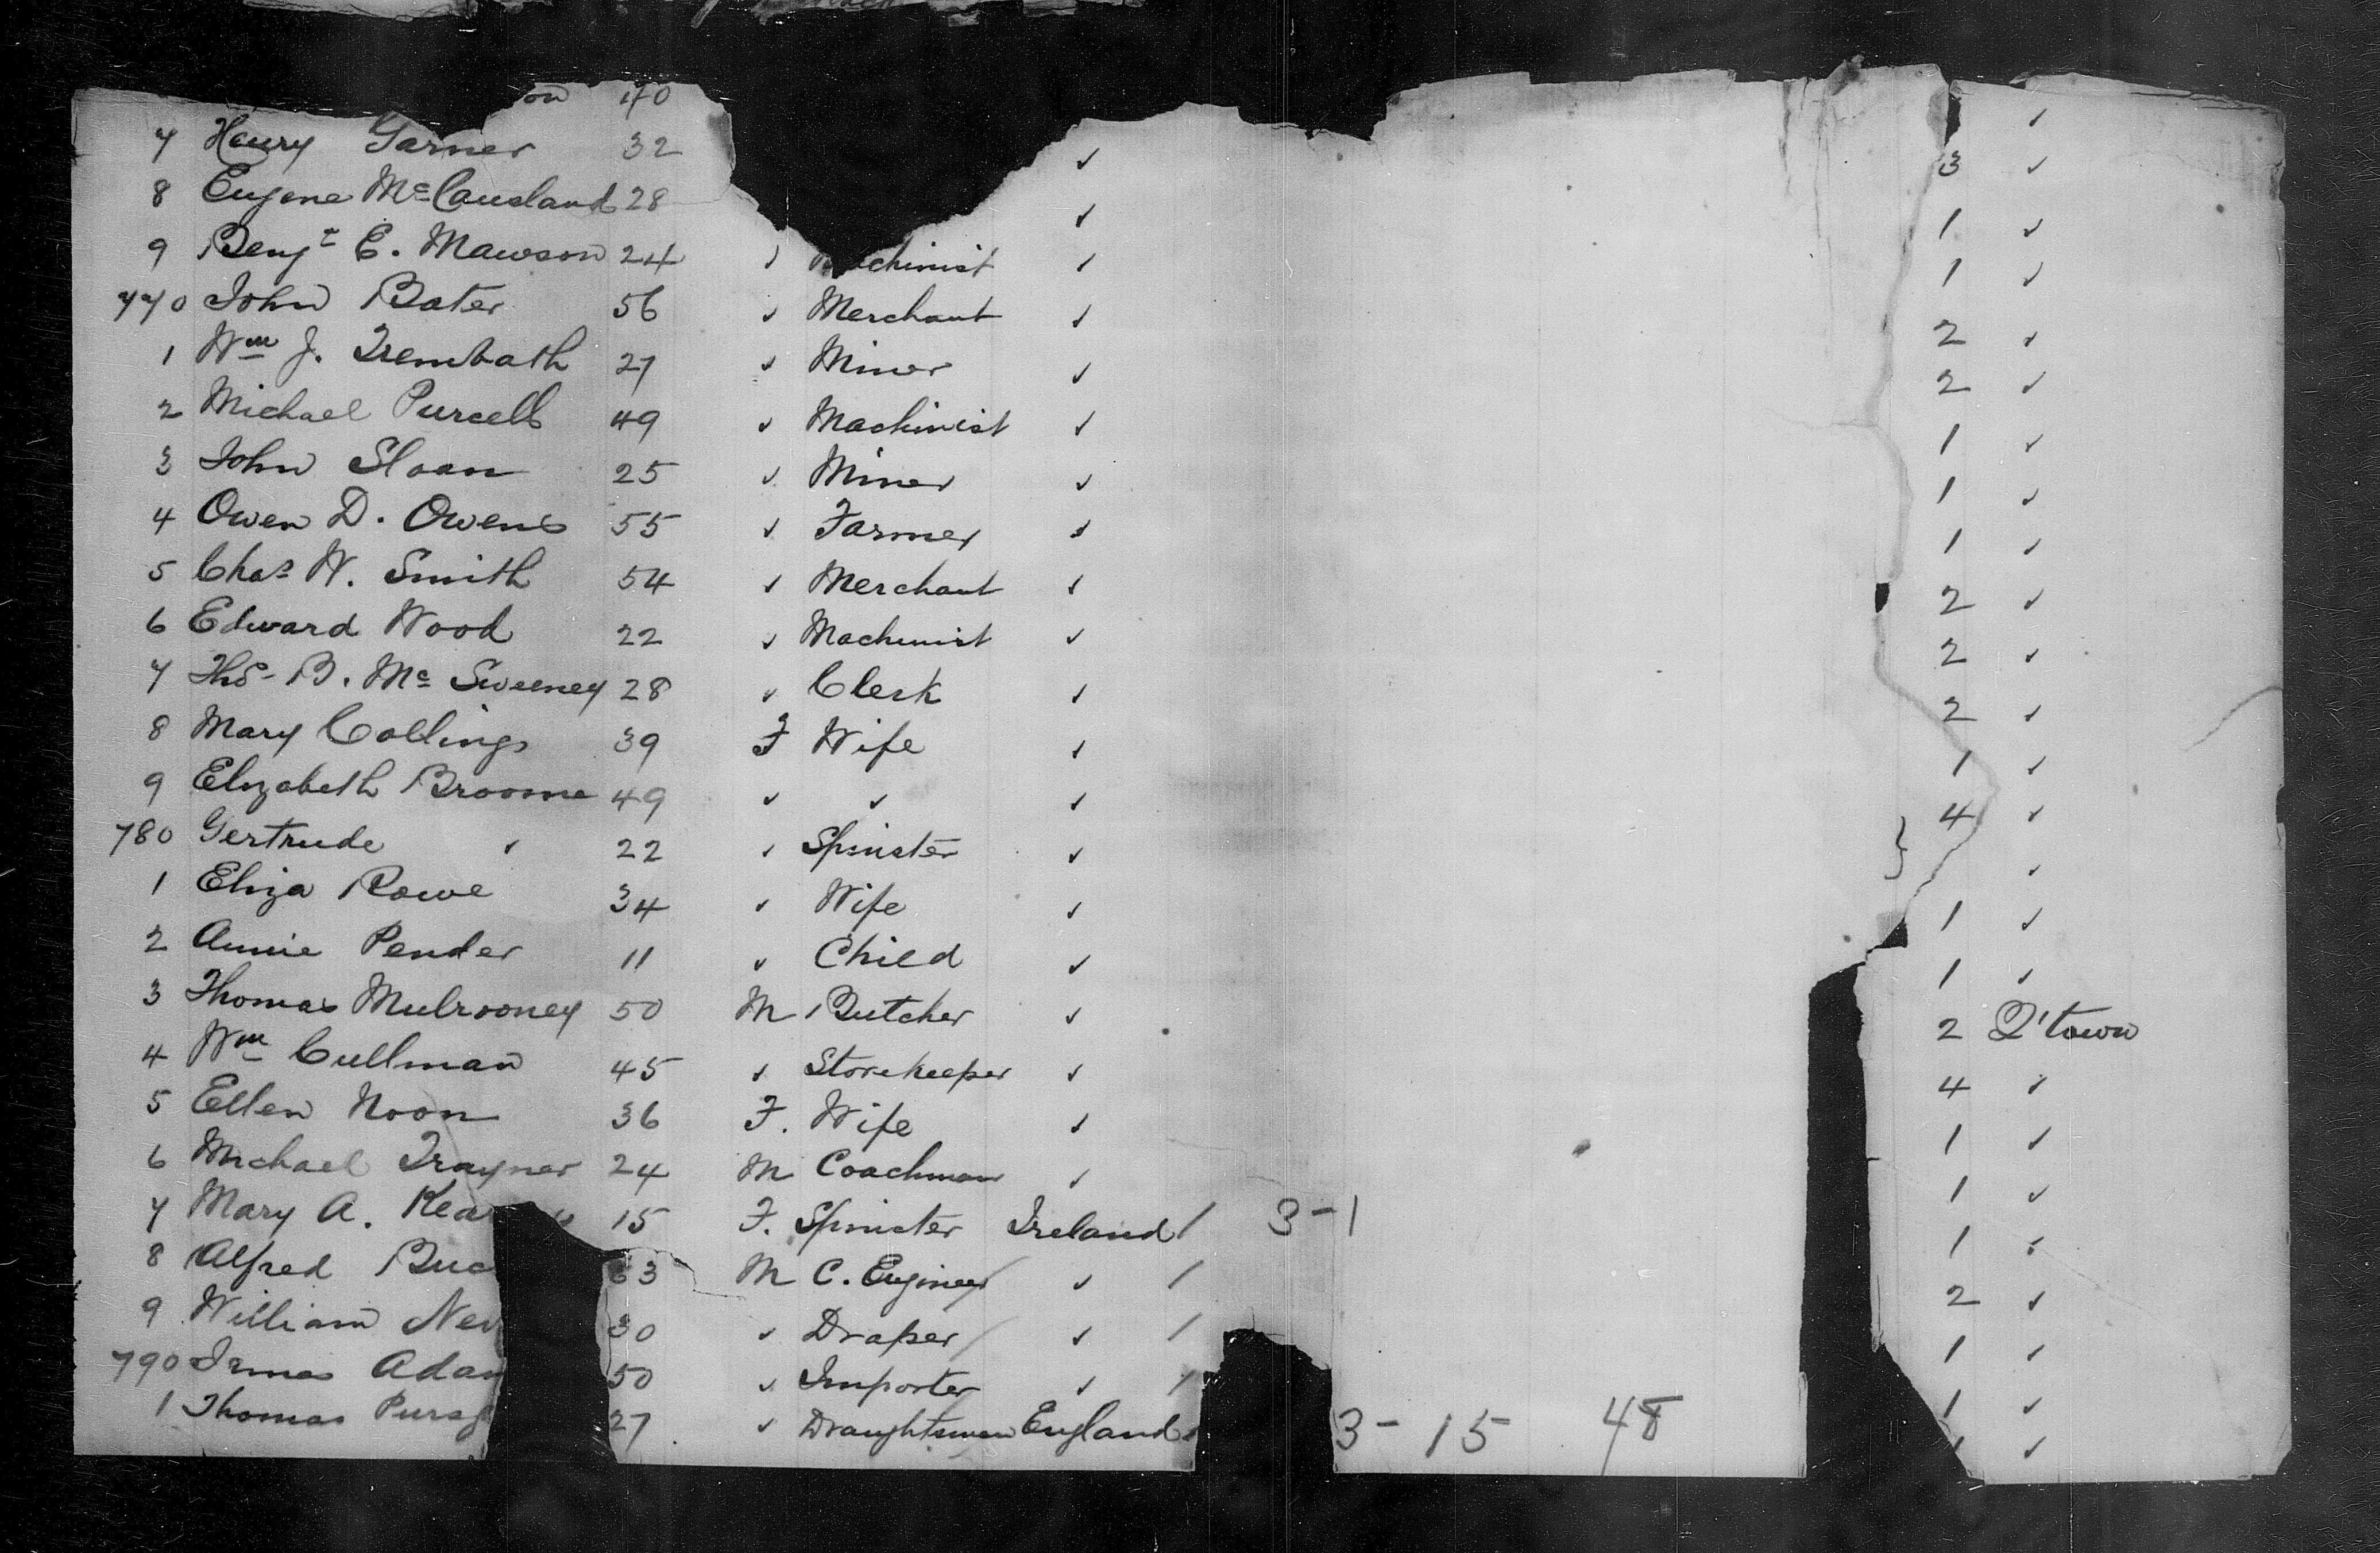 on 40
7 Henry Garner 32 ✓ ✓
8 Eugene Mc Causland 28 ✓ 3 ✓
9 Benjn E. Mawson 24 ✓ chinist ✓ 1 ✓
770 John Bater 56 ✓ Merchant ✓ 1 ✓
1 Wm J. Trembath 27 ✓ Miner ✓ 2 ✓
2 Michael Purcell 49 ✓ Machinist ✓ 2 ✓
3 John Sloan 25 ✓ Miner ✓ 1 ✓
4 Owen D. Owens 55 ✓ Farmer ✓ 1 ✓
5 Chas W. Smith 54 ✓ Merchant ✓ 1 ✓
6 Edward Wood 22 ✓ Machinist ✓ 2 ✓
7 Thos B. Mc Sweeney 28 ✓ Clerk ✓ 2 ✓
8 Mary Collings 39 F Wife ✓ 2 ✓
9 Elizabeth Broome 49 ✓ ✓ ✓ 1 ✓
780 Gertrude ✓ 22 ✓ Spinster ✓ } 4 ✓
1 Eliza Rowe 34 ✓ Wife ✓ ✓
2 Annie Pender 11 ✓ Child ✓ 1 ✓
3 Thomas Mulrooney 50 M Butcher ✓ 1 ✓
4 Wm Cullman 45 ✓ Storekeeper ✓ 2 Q'town
5 Ellen Noon 36 F. Wife ✓ 4 ✓
6 Michael Traynor 24 M Coachman ✓ 1 ✓
7 Mary A. Kear 15 F. Spinster Ireland / 3-1 1 ✓
8 Alfred Buc 63 M C. Engineer ✓ / 1 ✓
9 William New 30 ✓ Draper ✓ / 2 ✓
790 Adam 50 ✓ Importer ✓ / 1 ✓
1 Thomas 27 ✓ Draughtsman England 3-15 48 1 ✓
1 ✓